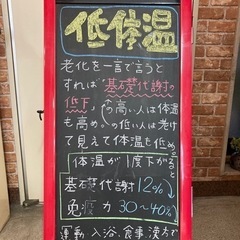 低体温
老化を一言で言うと
すれば"基礎代謝の
低下"の高い人は体温
も高め。の低い人は老けて
見えて体温も低め。
体温が1度下がると
基礎代謝12%↓
免疫力30～40%↓
運動 入浴、食事 漢方で